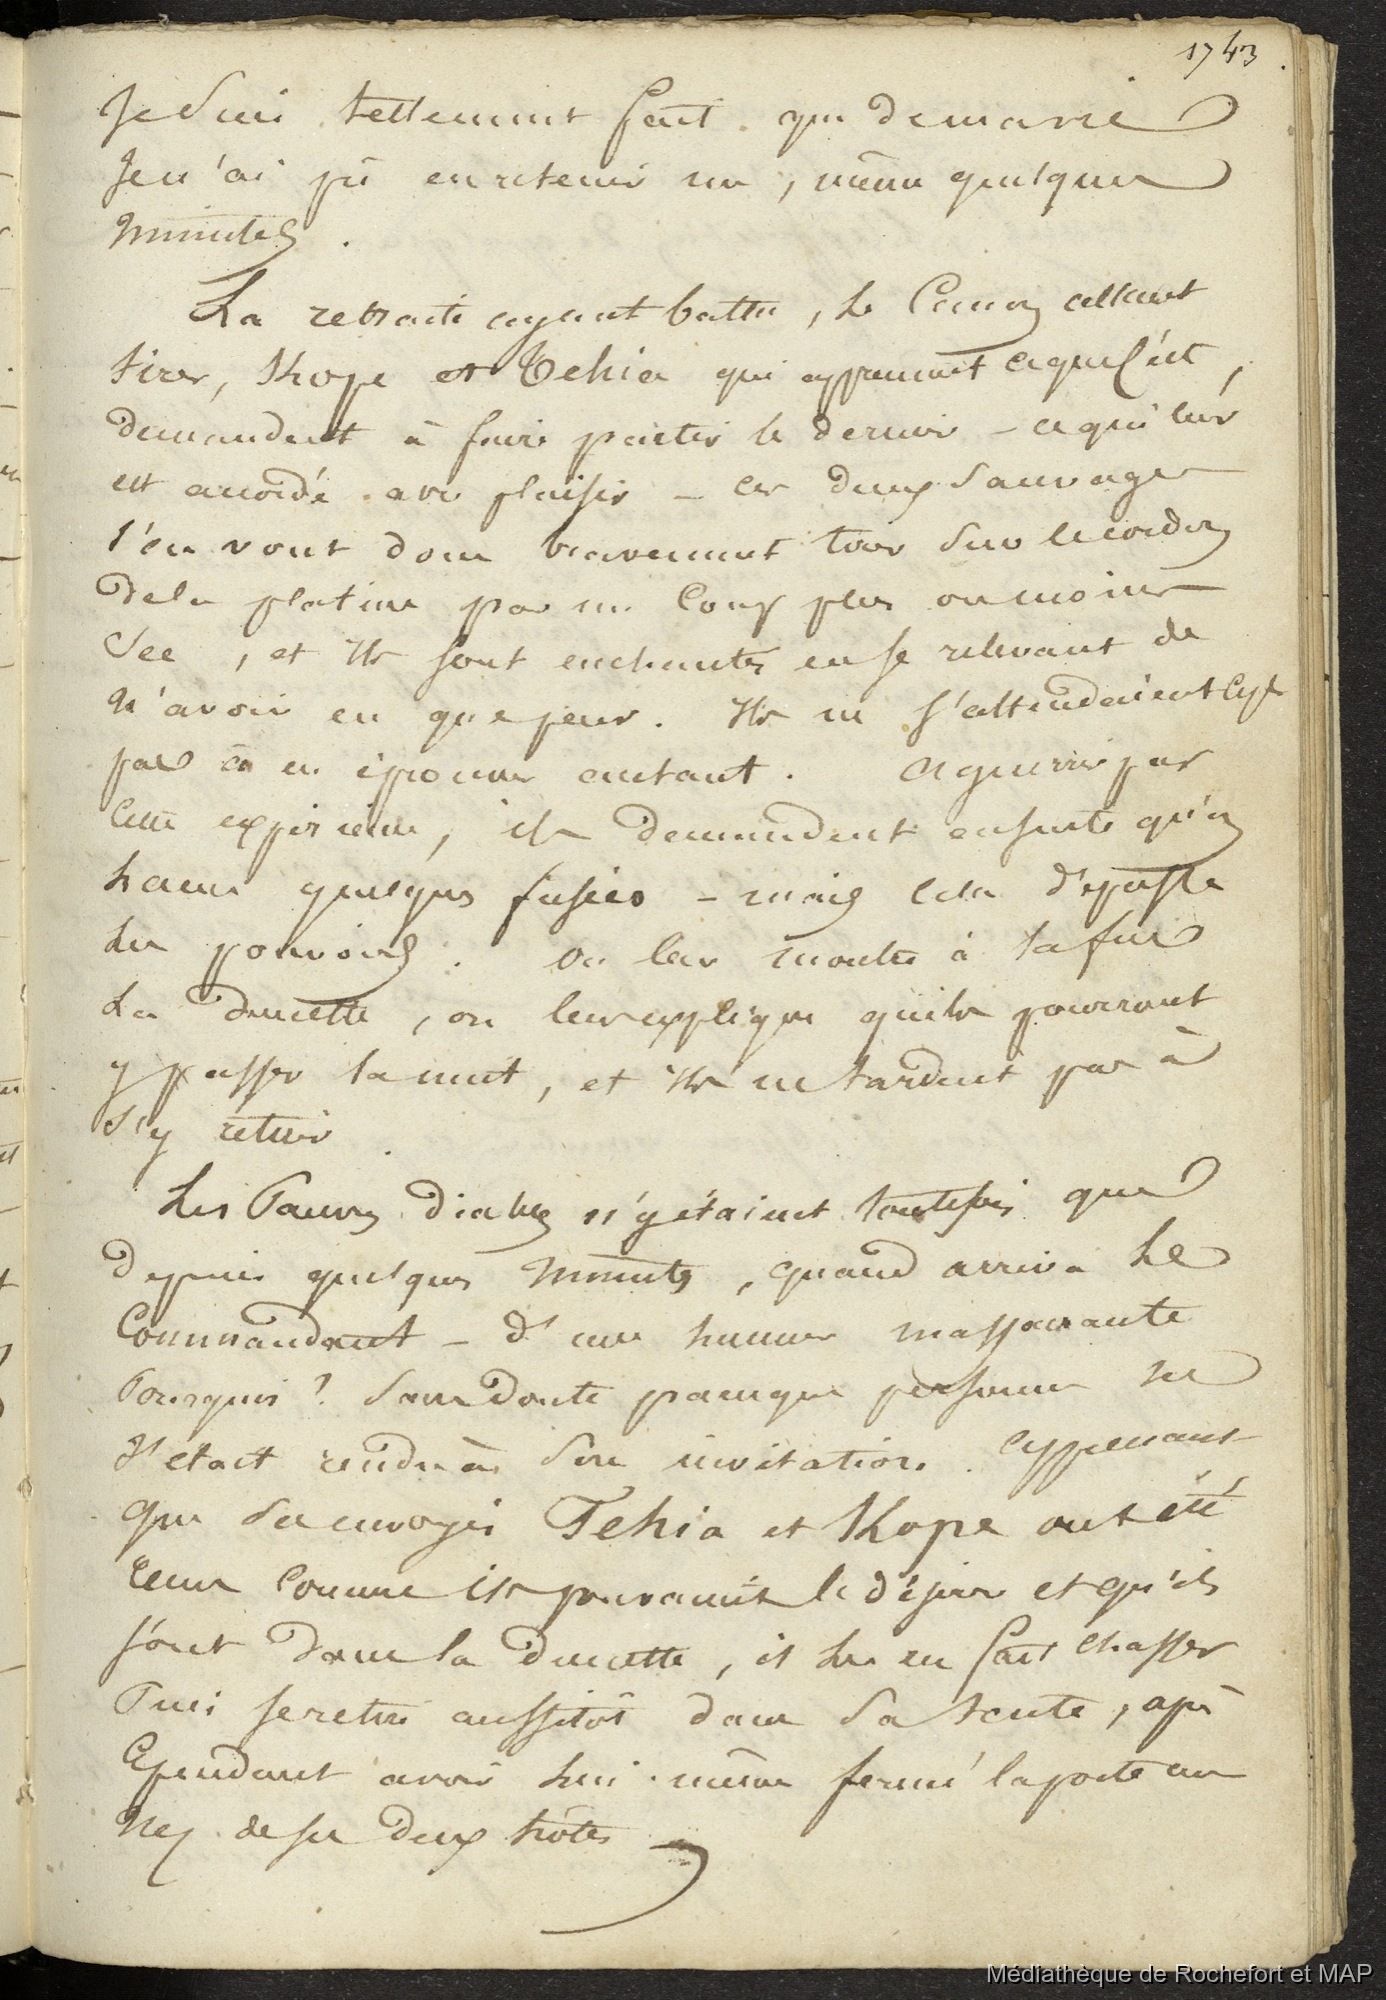 1743
Je suis tellement fait que de ma vie
Je n'ai pû en retenir un, même quelques
minutes.
La retraite ayant battu, le Canon allant
tirer, Kope et Tehia qui apprennent ce que c'est,
demandent à faire partir le dernier – ce qui leur
est accordé avec plaisir – ces deux sauvages
s'en vont donc bravement tirer sur le cordon
de la platine par un coup plus ou moins
sec, et ils sont enchantés en se relevant de
n'avoir eu que peur. Ils ne s'attendaient
pas à en éprouver autant. Aguerris par
cette expérience, ils demandent ensuite qu'on
lance quelques fusées – mais cela dépasse
les pouvoirs. On leur montre à la fin
la dunette, on leur explique qu'ils pourront
y passer la nuit, et ils ne tardent pas à
s'y retirer.
Les Pauvres diables n'y étaient toutefois que
depuis quelques minutes, quand arriva le
Commandant – d'une humeur massacrante
Pourquoi ? Sans doute parceque personne ne
s'etait rendu à son invitation. Apprenant
que ses envoyés Tehia et Kope ont été
reçus comme ils pouvaient le désirer et qu'ils
sont dans la dunette, il les en fait chasser
Puis se retire aussitôt dans sa tente, après
cependant avoir lui-même fermé la porte au
nez de ses deux hôtes
Médiathèque de Rochefort et MAP